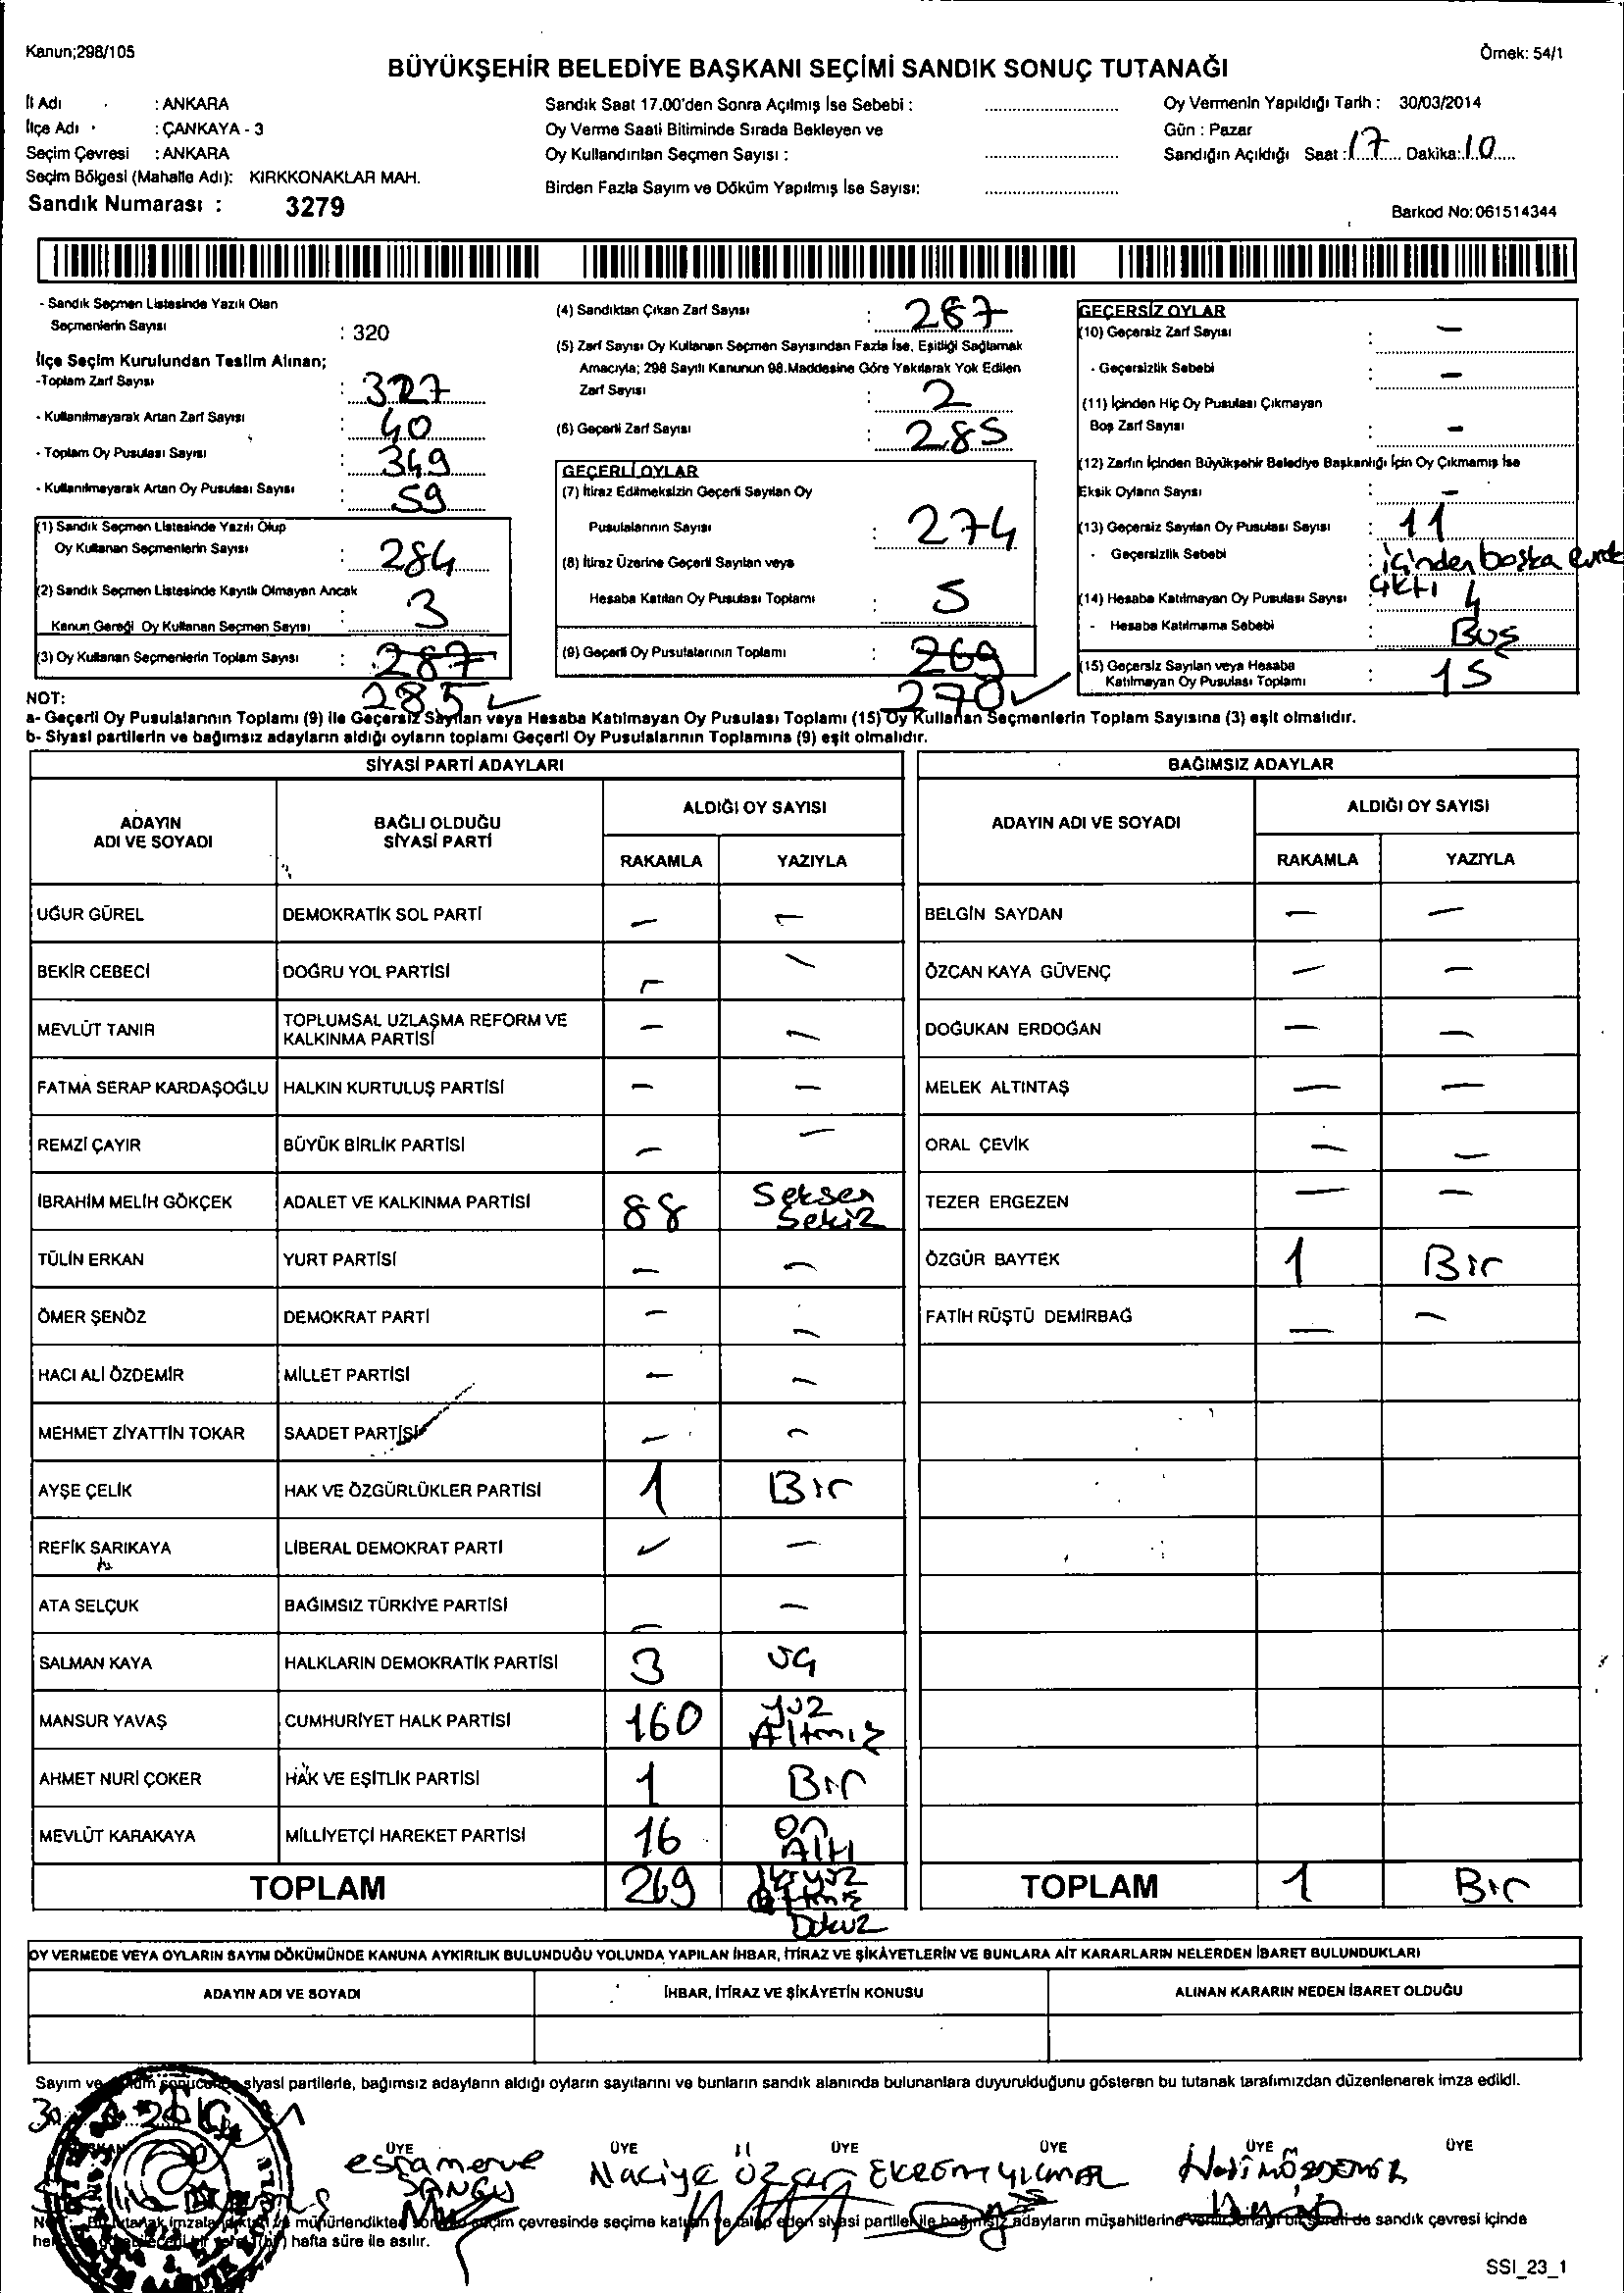 Kanun;298/105
Örnek: 54/1
BÜYÜKŞEHİR BELEDİYE BAŞKANI SEÇİMİ SANDIK SONUÇ TUTANAĞI
İl Adı : ANKARA
İlçe Adı : ÇANKAYA - 3
Seçim Çevresi : ANKARA
Seçim Bölgesi (Mahalle Adı): KIRKKONAKLAR MAH.
Sandık Numarası : 3279
Sandık Saat 17.00'den Sonra Açılmış İse Sebebi :
Oy Verme Saati Bitiminde Sırada Bekleyen ve
Oy Kullandırılan Seçmen Sayısı :
Birden Fazla Sayım ve Döküm Yapılmış İse Sayısı:
Oy Vermenin Yapıldığı Tarih : 30/03/2014
Gün : Pazar
Sandığın Açıldığı Saat : 17 Dakika: 10
Barkod No: 061514344
- Sandık Seçmen Listesinde Yazılı Olan
Seçmenlerin Sayısı : 320
İlçe Seçim Kurulundan Teslim Alınan;
-Toplam Zarf Sayısı : 327
- Kullanılmayarak Artan Zarf Sayısı : 40
- Toplam Oy Pusulası Sayısı : 349
- Kullanılmayarak Artan Oy Pusulası Sayısı : 59
(1) Sandık Seçmen Listesinde Yazılı Olup
Oy Kullanan Seçmenlerin Sayısı : 284
(2) Sandık Seçmen Listesinde Kayıtlı Olmayan Ancak
Kanun Gereği Oy Kullanan Seçmen Sayısı : 3
(3) Oy Kullanan Seçmenlerin Toplam Sayısı : 287
285
(4) Sandıktan Çıkan Zarf Sayısı : 287
(5) Zarf Sayısı Oy Kullanan Seçmen Sayısından Fazla İse, Eşitliği Sağlamak
Amacıyla; 298 Sayılı Kanunun 98.Maddesine Göre Yakılarak Yok Edilen
Zarf Sayısı : 2
(6) Geçerli Zarf Sayısı : 285
GEÇERLİ OYLAR
(7) İtiraz Edilmeksizin Geçerli Sayılan Oy
Pusulalarının Sayısı : 274
(8) İtiraz Üzerine Geçerli Sayılan veya
Hesaba Katılan Oy Pusulası Toplamı : 5
(9) Geçerli Oy Pusulalarının Toplamı : 269
270
GEÇERSİZ OYLAR
(10) Geçersiz Zarf Sayısı : —
- Geçersizlik Sebebi : —
(11) İçinden Hiç Oy Pusulası Çıkmayan
Boş Zarf Sayısı : —
(12) Zarfın İçinden Büyükşehir Belediye Başkanlığı İçin Oy Çıkmamış İse
Eksik Oyların Sayısı : —
(13) Geçersiz Sayılan Oy Pusulası Sayısı : 11
- Geçersizlik Sebebi : içinden başka evrak
çıktı
(14) Hesaba Katılmayan Oy Pusulası Sayısı 4
- Hesaba Katılmama Sebebi : Boş
(15) Geçersiz Sayılan veya Hesaba
Katılmayan Oy Pusulası Toplamı : 15
NOT:
a- Geçerli Oy Pusulalarının Toplamı (9) ile Geçersiz Sayılan veya Hesaba Katılmayan Oy Pusulası Toplamı (15) Oy Kullanan Seçmenlerin Toplam Sayısına (3) eşit olmalıdır.
b- Siyasi partilerin ve bağımsız adayların aldığı oyların toplamı Geçerli Oy Pusulalarının Toplamına (9) eşit olmalıdır.
SİYASİ PARTİ ADAYLARI
ADAYIN ADI VE SOYADI BAĞLI OLDUĞU SİYASİ PARTİ ALDIĞI OY SAYISI
RAKAMLA YAZIYLA
UĞUR GÜREL DEMOKRATİK SOL PARTİ — —
BEKİR CEBECİ DOĞRU YOL PARTİSİ — —
MEVLÜT TANIR TOPLUMSAL UZLAŞMA REFORM VE KALKINMA PARTİSİ — —
FATMA SERAP KARDAŞOĞLU HALKIN KURTULUŞ PARTİSİ — —
REMZİ ÇAYIR BÜYÜK BİRLİK PARTİSİ — —
İBRAHİM MELİH GÖKÇEK ADALET VE KALKINMA PARTİSİ 88 Seksen Sekiz
TÜLİN ERKAN YURT PARTİSİ — —
ÖMER ŞENÖZ DEMOKRAT PARTİ — —
HACI ALİ ÖZDEMİR MİLLET PARTİSİ — —
MEHMET ZİYATTİN TOKAR SAADET PARTİSİ — —
AYŞE ÇELİK HAK VE ÖZGÜRLÜKLER PARTİSİ 1 Bir
REFİK SARIKAYA LİBERAL DEMOKRAT PARTİ — —
ATA SELÇUK BAĞIMSIZ TÜRKİYE PARTİSİ — —
SALMAN KAYA HALKLARIN DEMOKRATİK PARTİSİ 3 üç
MANSUR YAVAŞ CUMHURİYET HALK PARTİSİ 160 yüz Altmış
AHMET NURİ ÇOKER HAK VE EŞİTLİK PARTİSİ 1 Bir
MEVLÜT KARAKAYA MİLLİYETÇİ HAREKET PARTİSİ 16 on Altı
TOPLAM 269 İkiyüz altmış Dokuz
BAĞIMSIZ ADAYLAR
ADAYIN ADI VE SOYADI ALDIĞI OY SAYISI
RAKAMLA YAZIYLA
BELGİN SAYDAN — —
ÖZCAN KAYA GÜVENÇ — —
DOĞUKAN ERDOĞAN — —
MELEK ALTINTAŞ — —
ORAL ÇEVİK — —
TEZER ERGEZEN — —
ÖZGÜR BAYTEK 1 Bir
FATİH RÜŞTÜ DEMİRBAĞ — —
TOPLAM 1 Bir
OY VERMEDE VEYA OYLARIN SAYIM DÖKÜMÜNDE KANUNA AYKIRILIK BULUNDUĞU YOLUNDA YAPILAN İHBAR, İTİRAZ VE ŞİKÂYETLERİN VE BUNLARA AİT KARARLARIN NELERDEN İBARET BULUNDUKLARI
ADAYIN ADI VE SOYADI İHBAR, İTİRAZ VE ŞİKÂYETİN KONUSU ALINAN KARARIN NEDEN İBARET OLDUĞU
Sayım ve siyasi partilerle, bağımsız adayların aldığı oyların sayılarını ve bunların sandık alanında bulunanlara duyurulduğunu gösteren bu tutanak tarafımızdan düzenlenerek imza edildi.
ÜYE ÜYE ÜYE ÜYE ÜYE ÜYE
esra merve Naciye Özçar EKREM YILMAZ
çevresinde seçime siyasi partiler ile bağımsız adayların müşahitlerine de sandık çevresi içinde
hafta süre ile asılır.
SSI_23_1